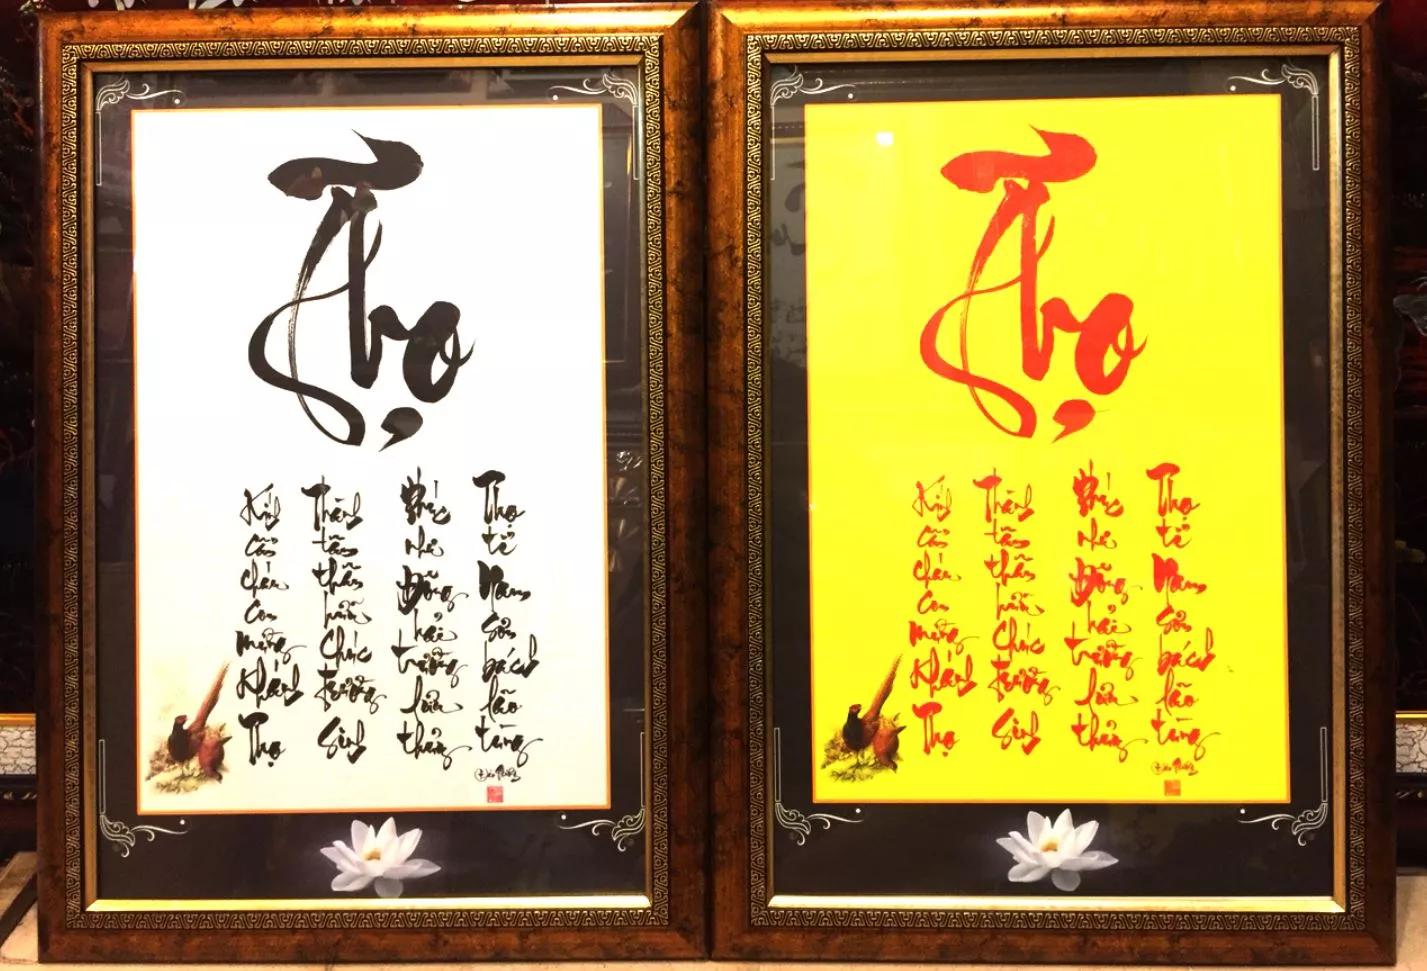 Thọ
Kính Cẩn cháu Con mừng Khánh Thọ
Thành tâm thân hữu Chúc trường Sinh
Phúc như Đông hải trường lưu thủy
Thọ tỉ Nam Sơn bách lão tùng
Thọ
Kính Cẩn cháu Con mừng Khánh Thọ
Thành tâm thân hữu Chúc trường Sinh
Phúc như Đông hải trường lưu thủy
Thọ tỉ Nam Sơn bách lão tùng